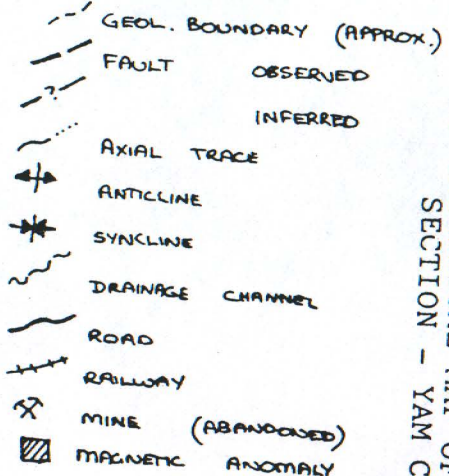 GEOL. BOUNDARY (APPROX.)
FAULT OBSERVED
?
INFERRED
AXIAL TRACE
ANTICLINE
SYNCLINE
DRAINAGE CHANNEL
ROAD
RAILWAY
MINE (ABANDONED)
MAGNETIC ANOMALY
SECTION - YAM